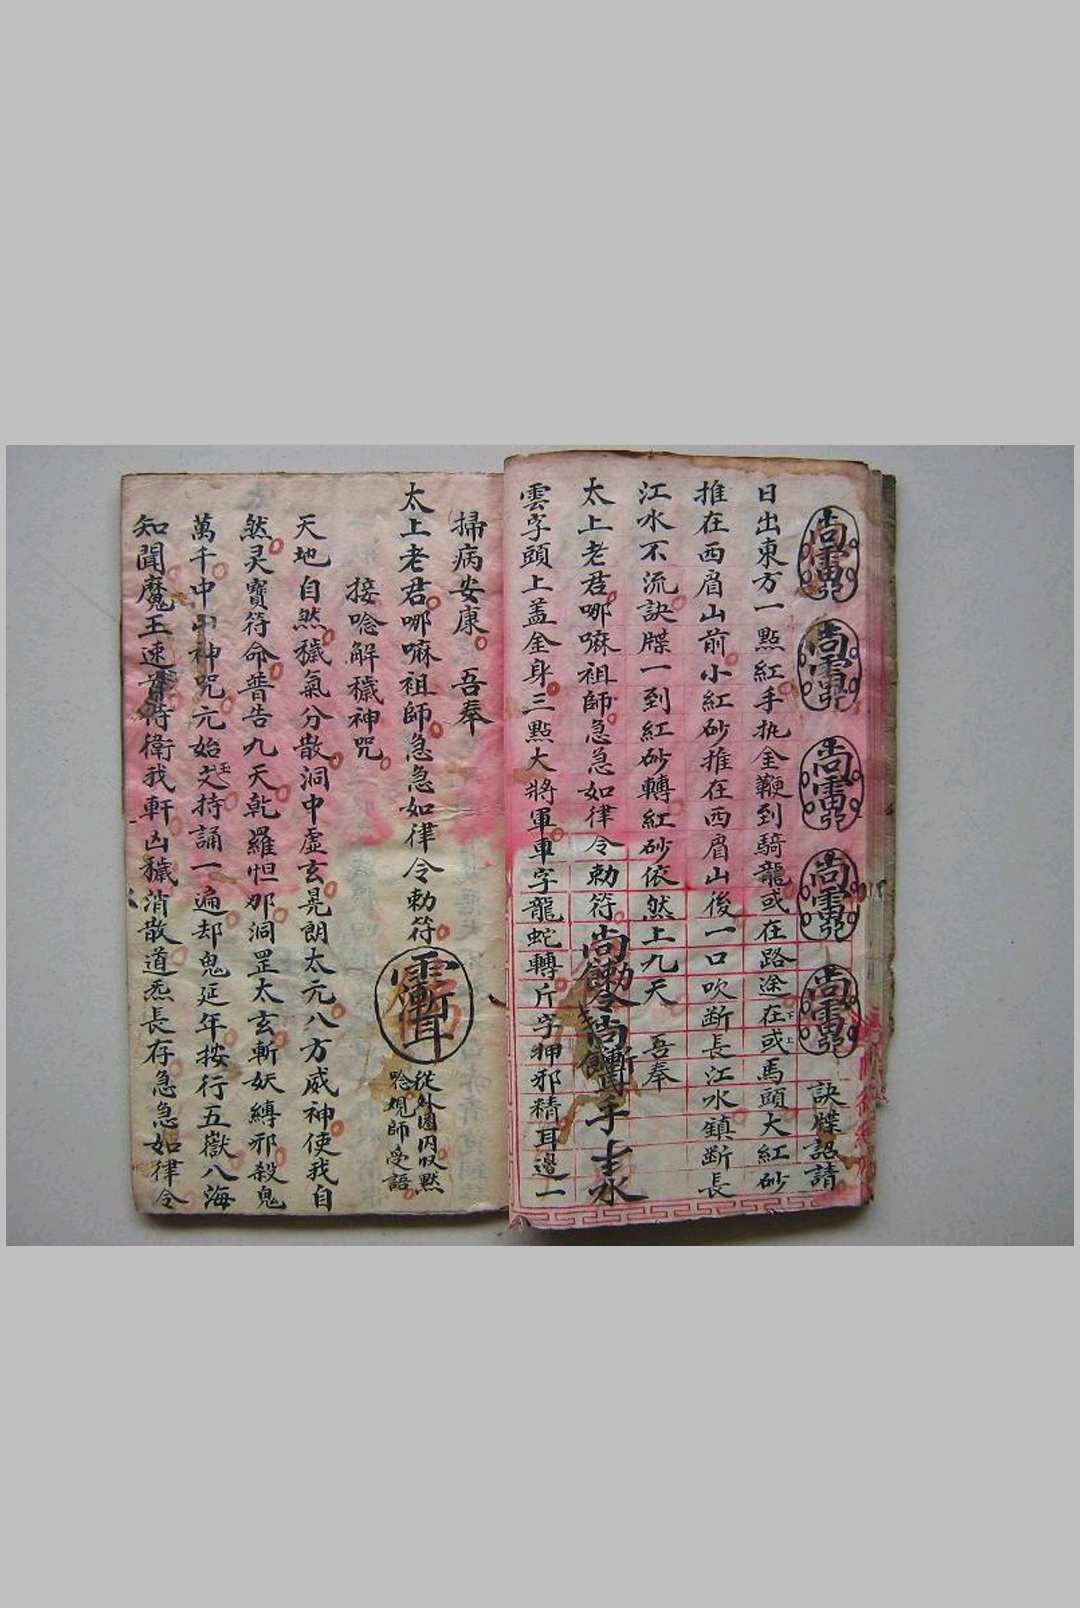 訣牒詔請
日出東方一點紅手执金鞭到騎龍或在路途在或下上馬頭大紅砂
推在西眉山前小紅砂推在西眉山後一口吹断長江水鎮断長
江水不流訣牒一到紅砂轉紅砂依然上九天 吾奉
太上老君哪嘛祖師急急如律令勅符
雲字頭上盖金身三點大將軍車字龍蛇轉斤字押邪精耳邊一
掃病安康 吾奉
太上老君哪嘛祖師急急如律令勅符
從外圈內収黙
唸
師受語
接唸解穢神咒
天地自然穢氣分散洞中虛玄晃朗太元八方威神使我自
然灵寶符命普告九天乾羅怛那洞罡太玄斬妖縛邪殺鬼
萬千中山神咒元始玉文持誦一遍却鬼延年按行五嶽八海
知聞魔王速首侍衛我軒凶穢消散道炁長存急急如律令